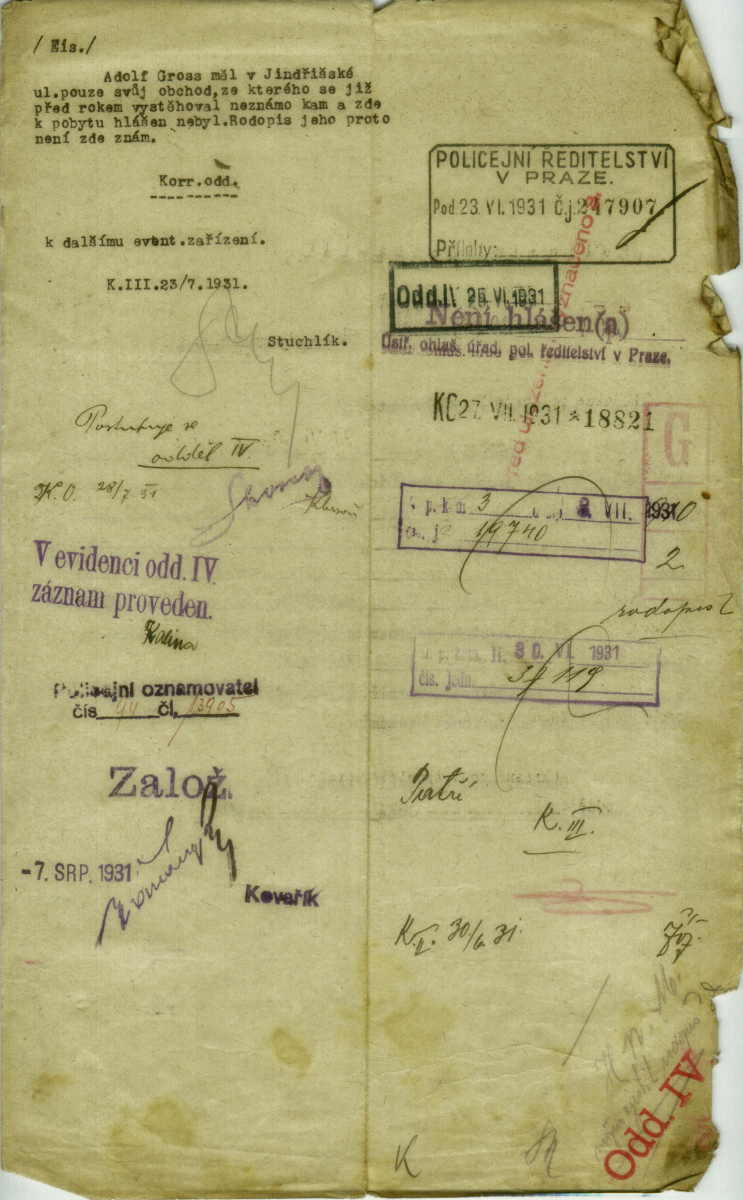 / Eis./
Adolf Gross měl v Jindřišské
ul.pouze svůj obchod,ze kterého se již
před rokem vystěhoval neznámo kam a zde
k pobytu hlášen nebyl.Rodopis jeho proto
není zde znám.
Korr.odd.
k dalšímu event.zařízení.
K.III.23/7.1931.
Stuchlík.
Postupuje se
odděl IV
K.O. 28/7 31
V evidenci odd. IV.
záznam proveden.
Kalina
Policejní oznamovatel
čís 44 čl. 13905
Založ.
-7. SRP. 1931
Kovařík
POLICEJNÍ ŘEDITELSTVÍ
V PRAZE.
Pod 23. VI. 1931 Č.j. 247907
Přílohy:
Odd. IV 25. VI. 1931
Není hlášen(a)
Ústř. ohlaš. úřad. pol. ředitelství v Praze.
KC 27. VII. 1931 * 18821
G
3 VII. 1931
19740
2.
rodopis
30. VI. 1931
čís. jedn.
Patří
K. III.
K.II. 30/6 31.
K
Odd. IV